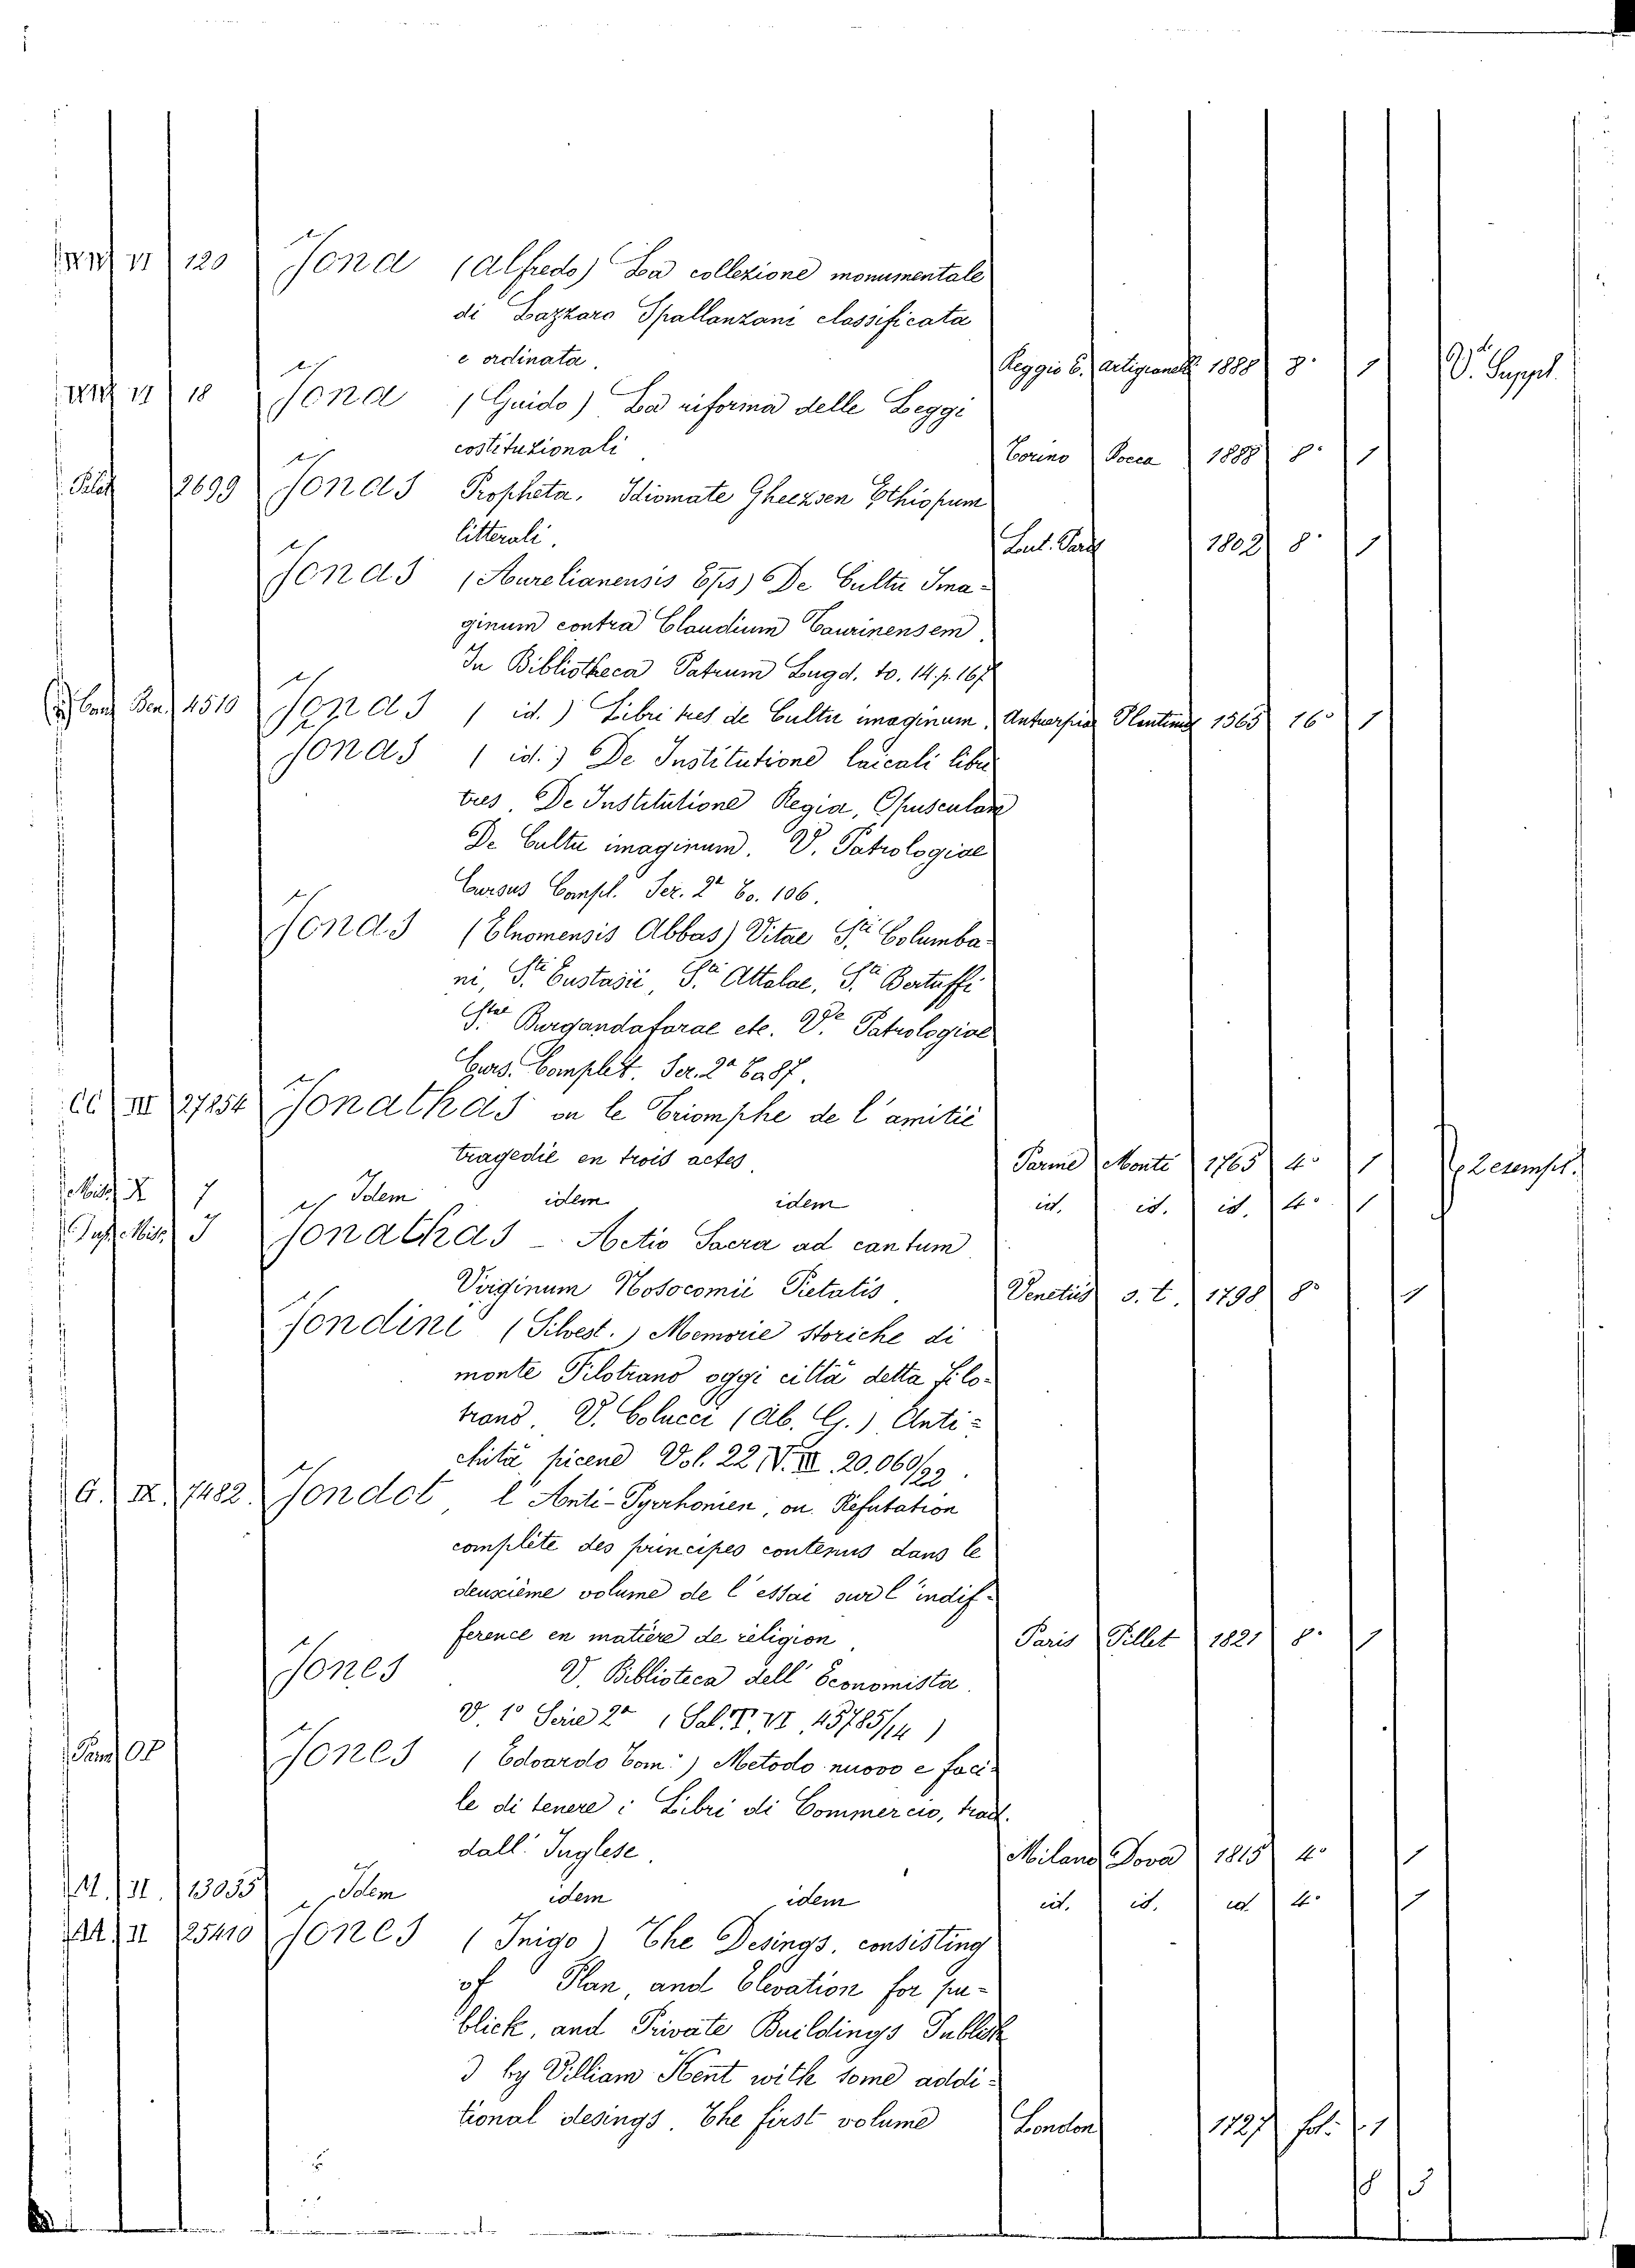 VI 120 Jona (Alfredo) La collezione monumentale
di Lazzaro Spallanzani classificata
e ordinata. Reggio E. Artigianelli 1888 8° 1 V. Suppl.
VI 18 Jona (Guido) La riforma delle Leggi
costituzionali Torino Bocca 1888 8° 1
2699 Jonas Propheta. Idiomate Gheezsen Ethiopum
litterali. Lut. Par. 1802 8° 1
Jonas (Aurelianensis Eps) De Cultu Ima-
ginum contra Claudium Taurinensem.
In Bibliotheca Patrum Lugd. to. 14. p. 167
Ben. 4510 Jonas (id.) Libri tres de Cultu imaginum. Antuerpiae Plantinus 1565 16° 1
Jonas (id.) De Institutione laicali libri
tres. De Institutione Regia, Opusculum
De Cultu imaginum. V. Patrologiae
Cursus Compl. Ser. 2ª To. 106.
Jonas (Elnomensis Abbas) Vitae Sti Columba-
ni, Sti Eustasii, Sti Attalae, Sti Bertulfi
Stae Burgandoforae etc. V. Patrologiae
Curs. Complet. Ser. 2ª To 87.
CC III 27254 Jonathas ou le Triomphe de l'amitié
tragedie en trois actes. Parme Monti 1765 4° 1 2 esempl.
Misc. X 7 Idem idem idem id. id. id. 4° 1
Misc. J Jonathas - Actio Sacra ad cantum
Virginum Nosocomii Pietatis. Venetiis s. t. 1798 8° 1
Jondini (Silvest.) Memorie storiche di
monte Filotrano oggi città detta Filo-
trano. V. Colucci (Ab. G.) Anti-
chità picene Vol. 22 V. III. 20.060/22.
G. IX. 7482. Jondot, l'Anti-Pyrrhonien, ou Refutation
complète des principes contenus dans le
deuxième volume de l'essai sur l'indif-
ference en matière de religion. Paris Pillet 1821 8° 1
Jones V. Biblioteca dell'Economista.
V. 1° Serie 2ª (Sal. T. VI 45785/14)
Jones (Edoardo Tom.) Metodo nuovo e faci-
le di tenere i Libri di Commercio, trad.
dall'Inglese. Milano Bova 1815 4° 1
M. II. 13035 Idem idem idem id. id. id. 4° 1
II 25410 Jones (Inigo) The Desings, consisting
of Plan, and Elevation for pu-
blick, and Private Buildings Publish
3 by Villiam Kent with some addi-
tional desings. The first volume London 1727 fol. 1
8 5